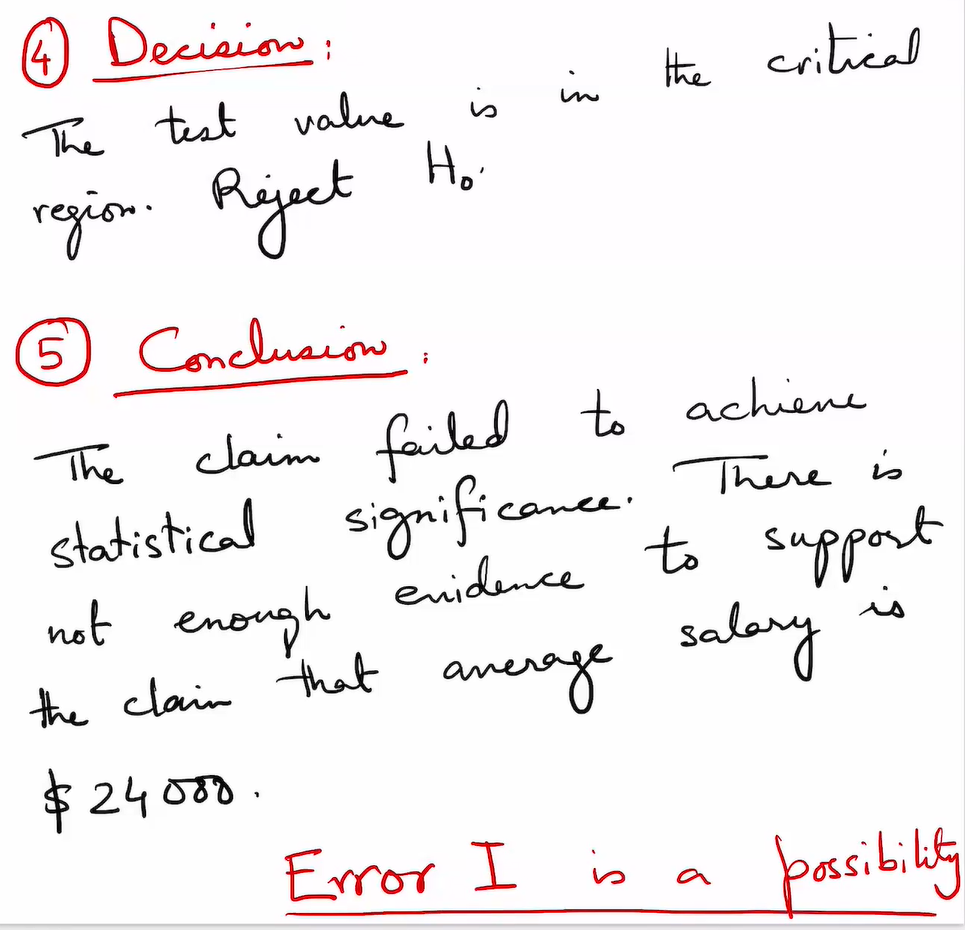 ④ Decision:
The test value is in the critical
region. Reject H₀.
⑤ Conclusion:
The claim failed to achieve
statistical significance. There is
not enough evidence to support
the claim that average salary is
$24000.
Error I is a possibility